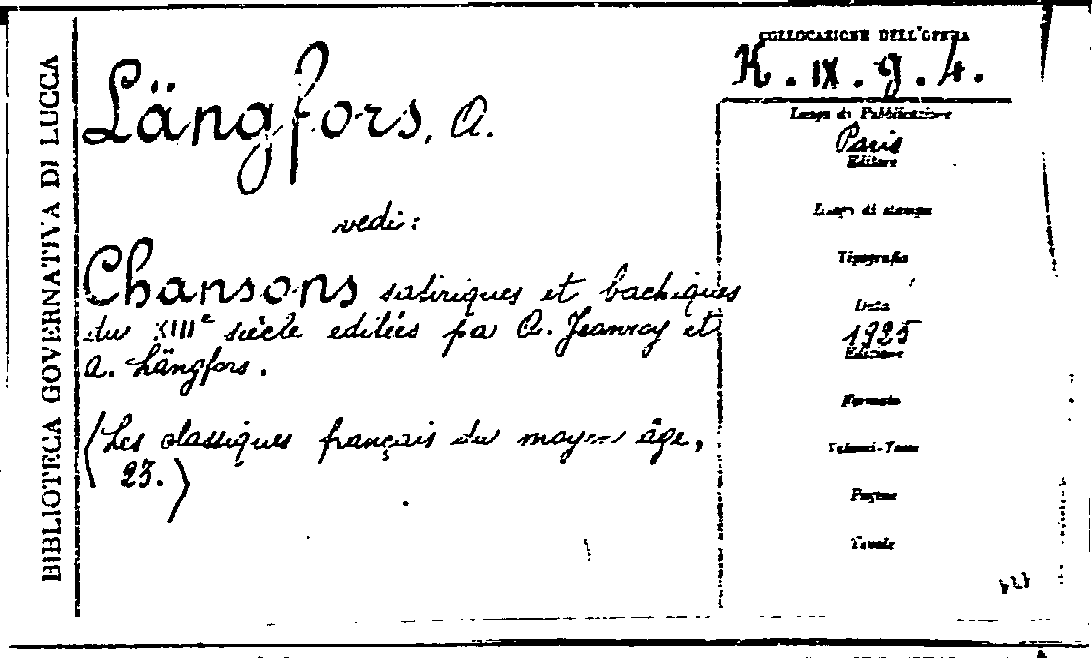 BIBLIOTECA GOVERNATIVA DI LUCCA
Längfors, A.
vedi:
Chansons satiriques et bachiques
du XIIIe siècle editées pa A. Jeanroy et
A. Längfors.
(Les classiques français du moyen âge,
23.)
COLLOCAZIONE DELL'OPERA
K. IX. g. 4.
Luogo di Pubblicazione
Paris
Editore
Luogo di stampa
Tipografia
Data
1925
Edizione
Formato
Volumi-Tomi
Pagine
Tavole